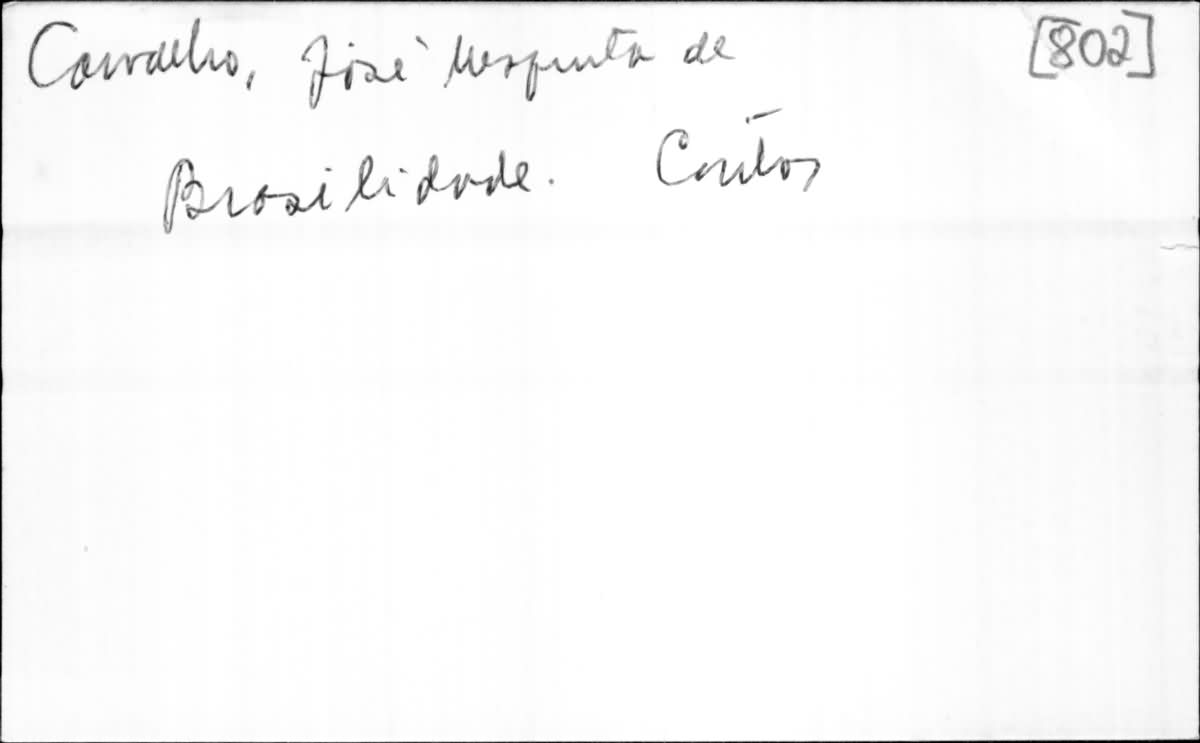 Carvalho, José Mesquita de [802]
Brasilidade. Contos